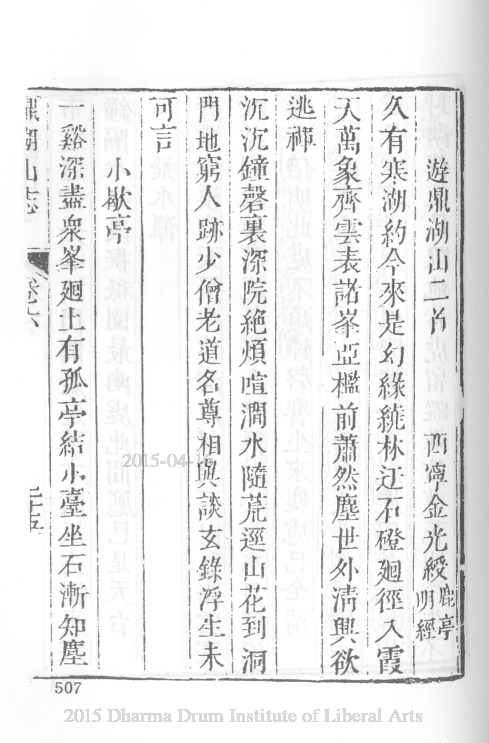 遊鼎湖山二首 西寧金光綬鹿亭明經
久有寒湖約今來是幻緣繞林迂石磴廻徑入霞
天萬象齊雲表諸峯亞檻前蕭然塵世外清興欲
逃禪
沉沉鐘磬裏深院絶煩喧澗水隨荒逕山花到洞
門地窮人跡少僧老道名尊相與談玄錄浮生未
可言
小歇亭
十谿深盡衆峯廻上有孤亭結小臺坐石漸知塵
鼎湖山志 卷之六
2015-04-1
507
2015 Dharma Drum Institute of Liberal Arts